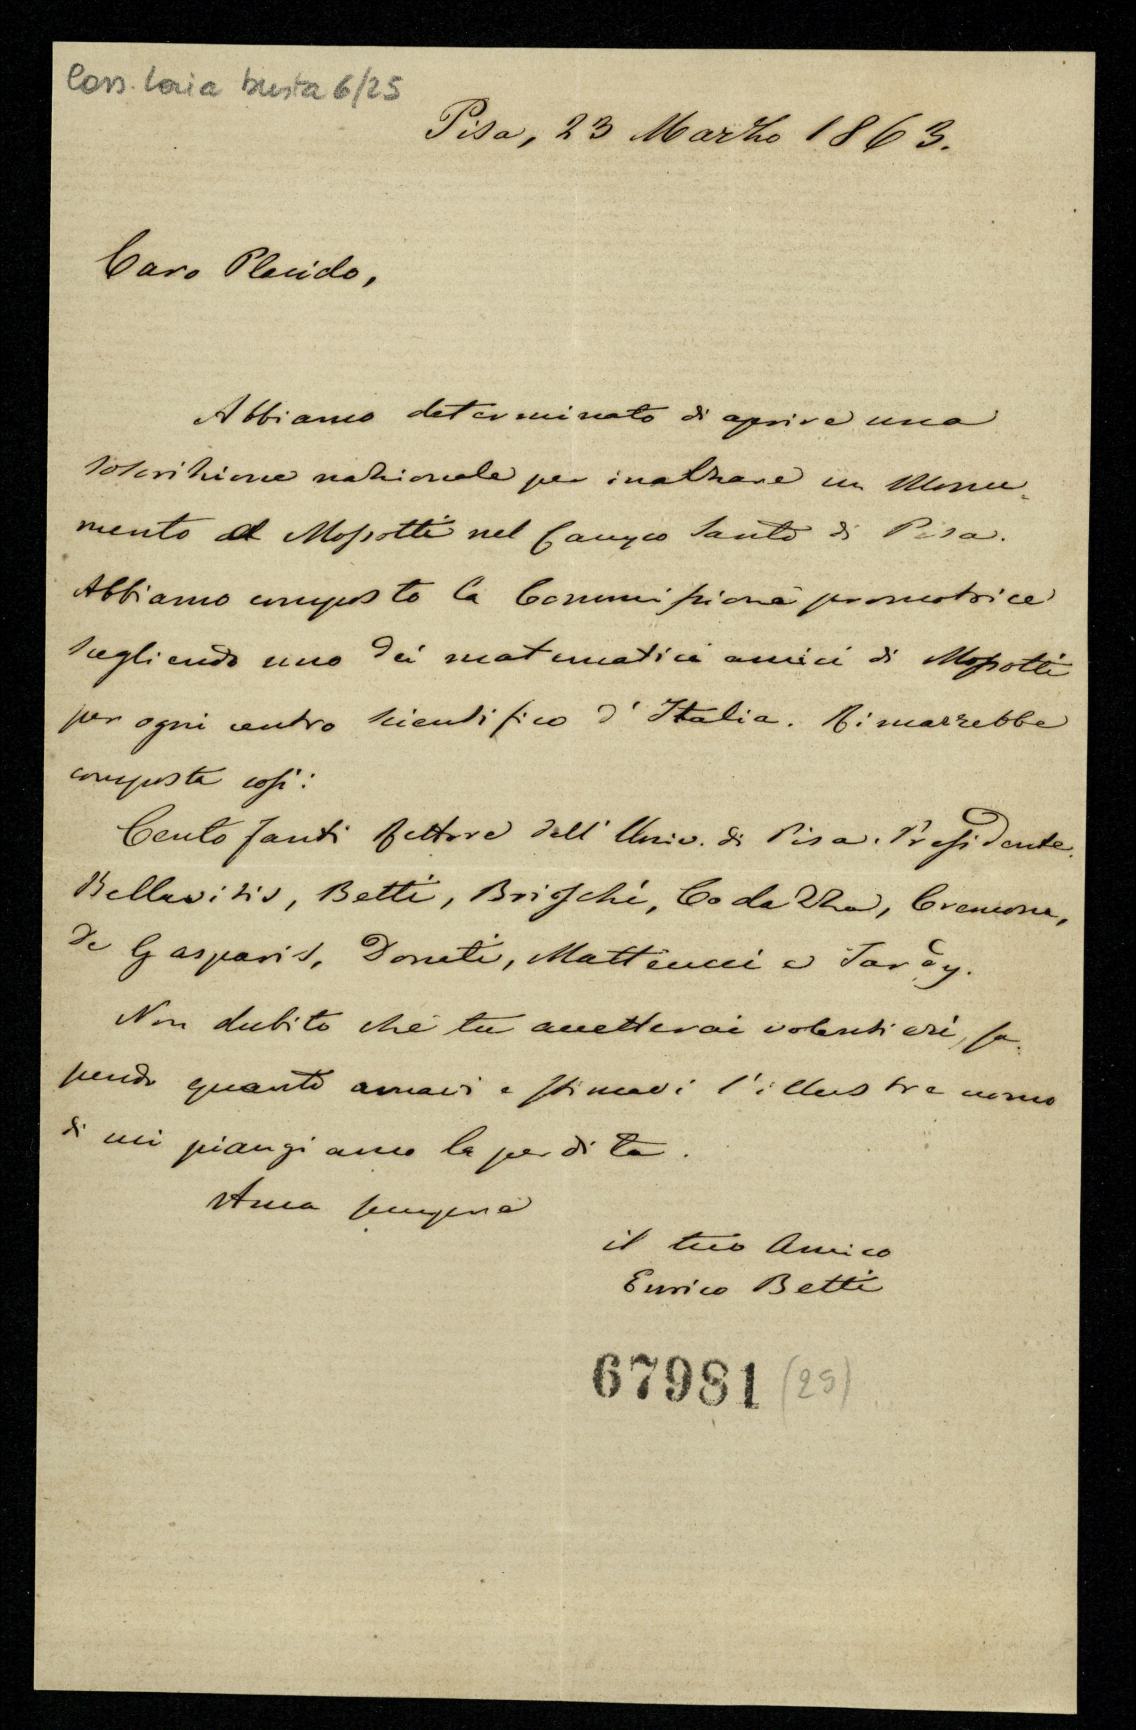 Corr. Loria busta 6/25
Pisa, 23 Marzo 1863.
Caro Placido,
Abbiamo determinato di aprire una
soscrizione nazionale per inalzare un Monu-
mento al Mossotti nel Campo Santo di Pisa.
Abbiamo composto la Commissione promotrice
scegliendo uno dei matematici amici di Mossotti
per ogni centro scientifico d'Italia. Rimarrebbe
composta così:
Centofanti Rettore dell' Univ. di Pisa. Presidente.
Bellavitis, Betti, Brioschi, Codazza, Cremona,
De Gasparis, Donati, Matteucci e Tardy.
Non dubito che tu accetterai volentieri, sa-
pendo quanto amavi e stimavi l'illustre uomo
di cui piangiamo la perdita.
Ama sempre
il tuo Amico
Enrico Betti
67981 (25)